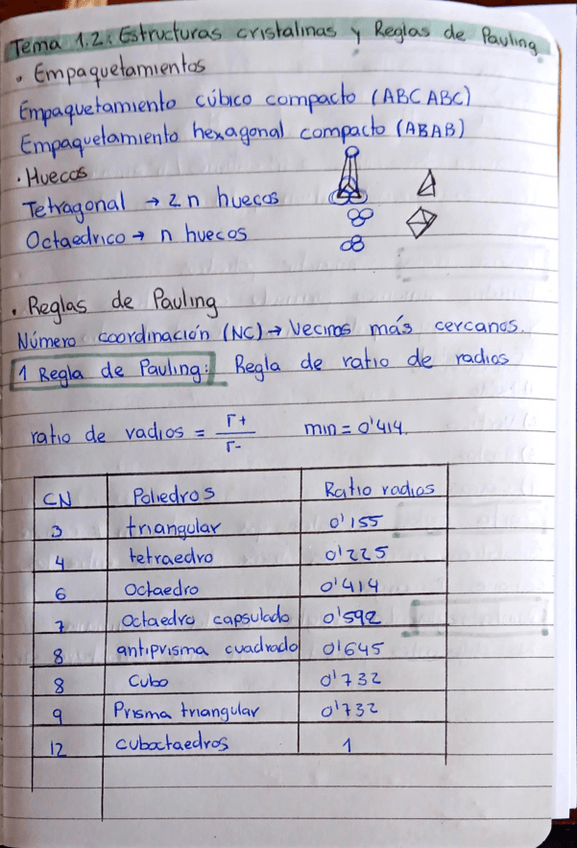 Tema 1.2: Estructuras cristalinas y Reglas de Pauling
• Empaquetamientos
Empaquetamiento cúbico compacto (ABCABC)
Empaquetamiento hexagonal compacto (ABAB)
• Huecos
Tetragonal → 2n huecos
Octaedrico → n huecos
• Reglas de Pauling
Número coordinación (NC) → Vecinos más cercanos.
1 Regla de Pauling: Regla de ratio de radios
ratio de radios = r+ / r- min = 0'414
CN Poliedros Ratio radios
3 triangular 0'155
4 tetraedro 0'225
6 Octaedro 0'414
7 Octaedro capsulado 0'592
8 antiprisma cuadrado 0'645
8 Cubo 0'732
9 Prisma triangular 0'732
12 cuboctaedros 1